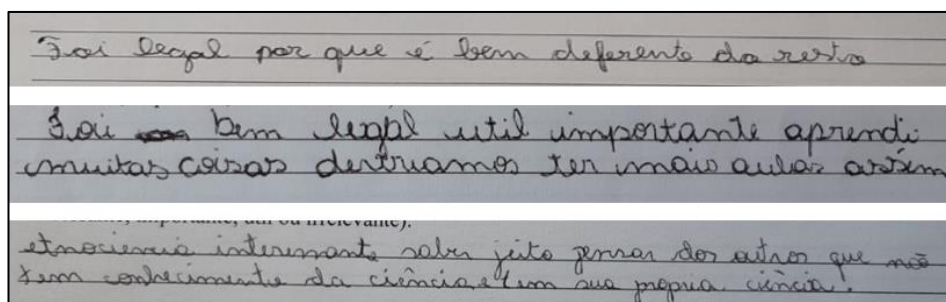 Foi legal por que é bem deferente do resto
Foi bem legal util importante aprendi
muitas coisas ter mais aulas assim
importante, útil ou irrelevante).
etnociencia interessante saber jeito pensar dos outros que não
tem conhecimento da ciência e tem sua propria ciência.